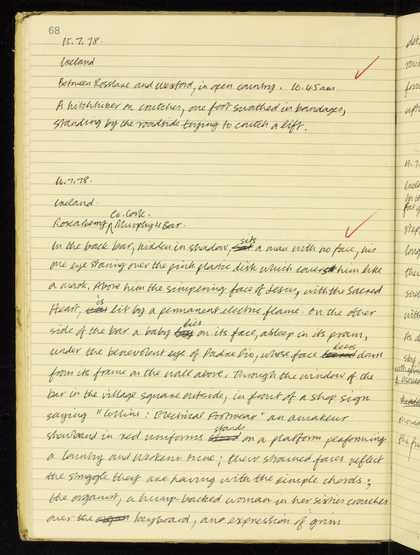 68
15.7.78.
Ireland
Between Rosslare and Wexford, in open country. 10.45 am.
A hitchhiker on crutches, one foot swathed in bandages,
standing by the roadside trying to catch a lift.
16.7.78.
Ireland.
Co. Cork.
Rosscarbery Murphy's Bar.
In the back bar, hidden in shadow, sits a man with no face, his
one eye staring over the pink plastic disk which covers him like
a mask. Above him the simpering face of Jesus, with the Sacred
Heart, is lit by a permanent electric flame. On the other
side of the bar a baby lies on its face, asleep in its pram,
under the benevolent eye of Padre Pio, whose face beams down
from its frame on the wall above. Through the window of the
bar in the village square outside, in front of a shop sign
saying "Collins: Electrical Footwear" an amateur
showband in red uniforms stands on a platform performing
a Country and Western tune; their strained faces reflect
the struggle they are having with the simple chords;
the organist, a hump-backed woman in her sixties crouches
over the keyboard, an expression of grim